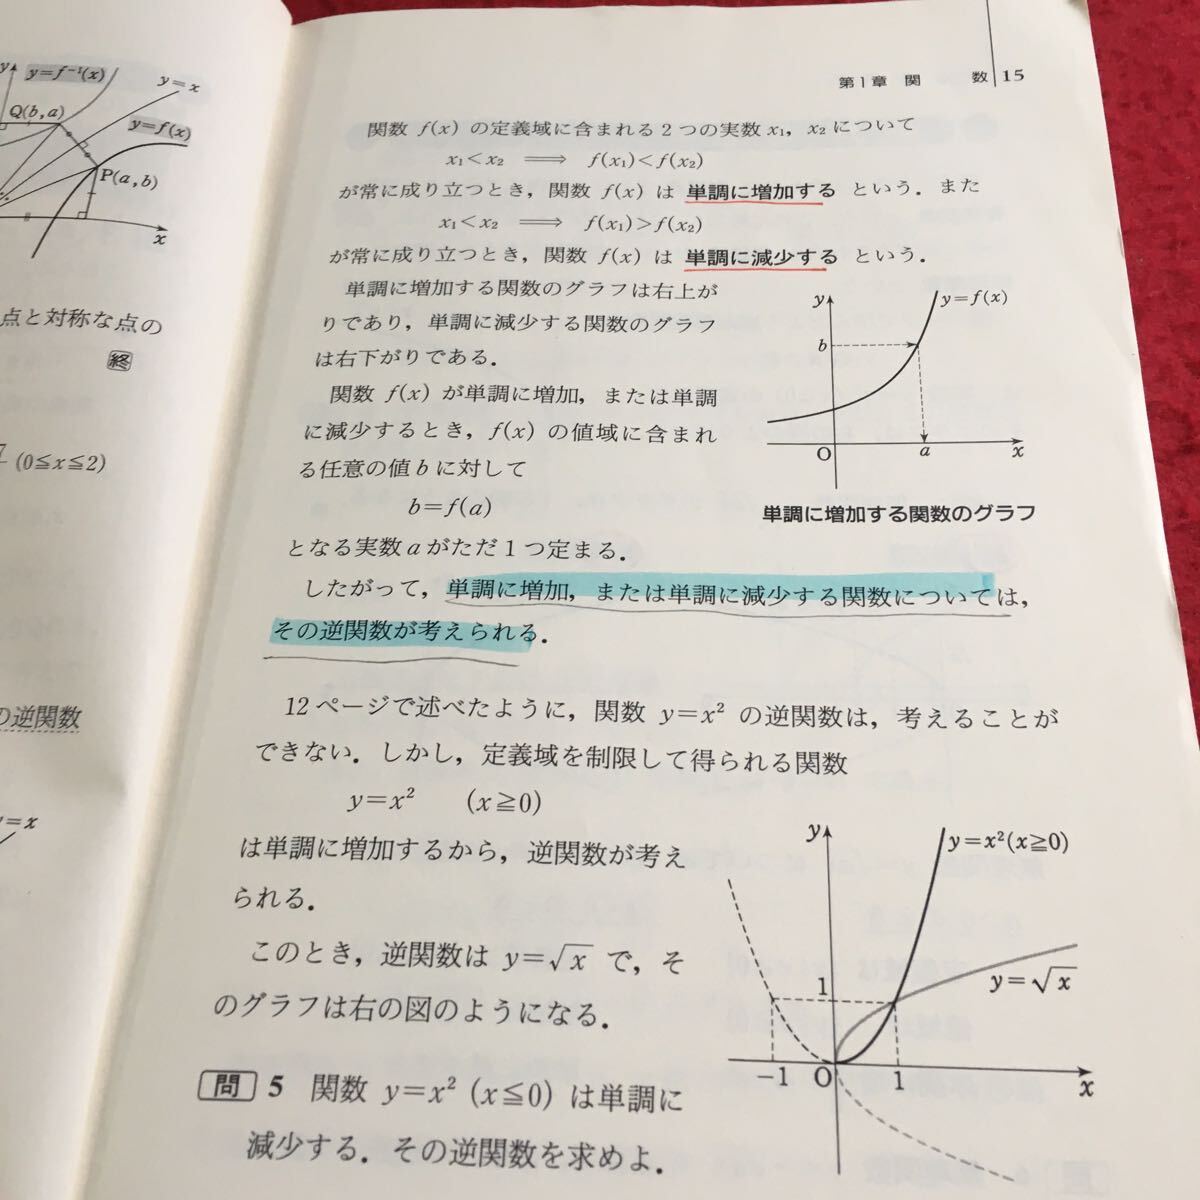 y
y=f⁻¹(x)
y=x
Q(b, a)
y=f(x)
P(a, b)
x
点と対称な点の
終
(0≦x≦2)
の逆関数
y=x
第1章 関 数 15
関数 f(x) の定義域に含まれる2つの実数 x₁, x₂ について
x₁<x₂ ⟹ f(x₁)<f(x₂)
が常に成り立つとき，関数 f(x) は 単調に増加する という．また
x₁<x₂ ⟹ f(x₁)>f(x₂)
が常に成り立つとき，関数 f(x) は 単調に減少する という．
単調に増加する関数のグラフは右上が
りであり，単調に減少する関数のグラフ
は右下がりである．
関数 f(x) が単調に増加，または単調
に減少するとき，f(x) の値域に含まれ
る任意の値 b に対して
b=f(a)
となる実数 a がただ1つ定まる．
y
y=f(x)
b
O
a
x
単調に増加する関数のグラフ
したがって，単調に増加，または単調に減少する関数については，
その逆関数が考えられる．
12ページで述べたように，関数 y=x² の逆関数は，考えることが
できない．しかし，定義域を制限して得られる関数
y=x² (x≧0)
は単調に増加するから，逆関数が考え
られる．
このとき，逆関数は y=√x で，そ
のグラフは右の図のようになる．
y
y=x²(x≧0)
1
y=√x
-1
O
1
x
問 5 関数 y=x² (x≦0) は単調に
減少する．その逆関数を求めよ．